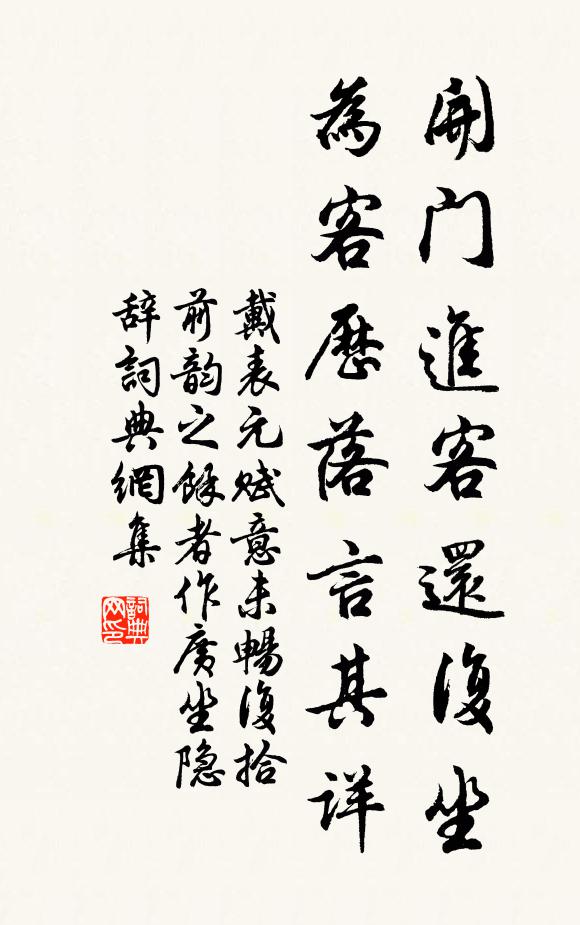 開門進客還復坐
為客歷落言其詳
戴表元賦意未暢復拾
前韵之餘者作廣坐隐
辞詞典網集
詞典
网印